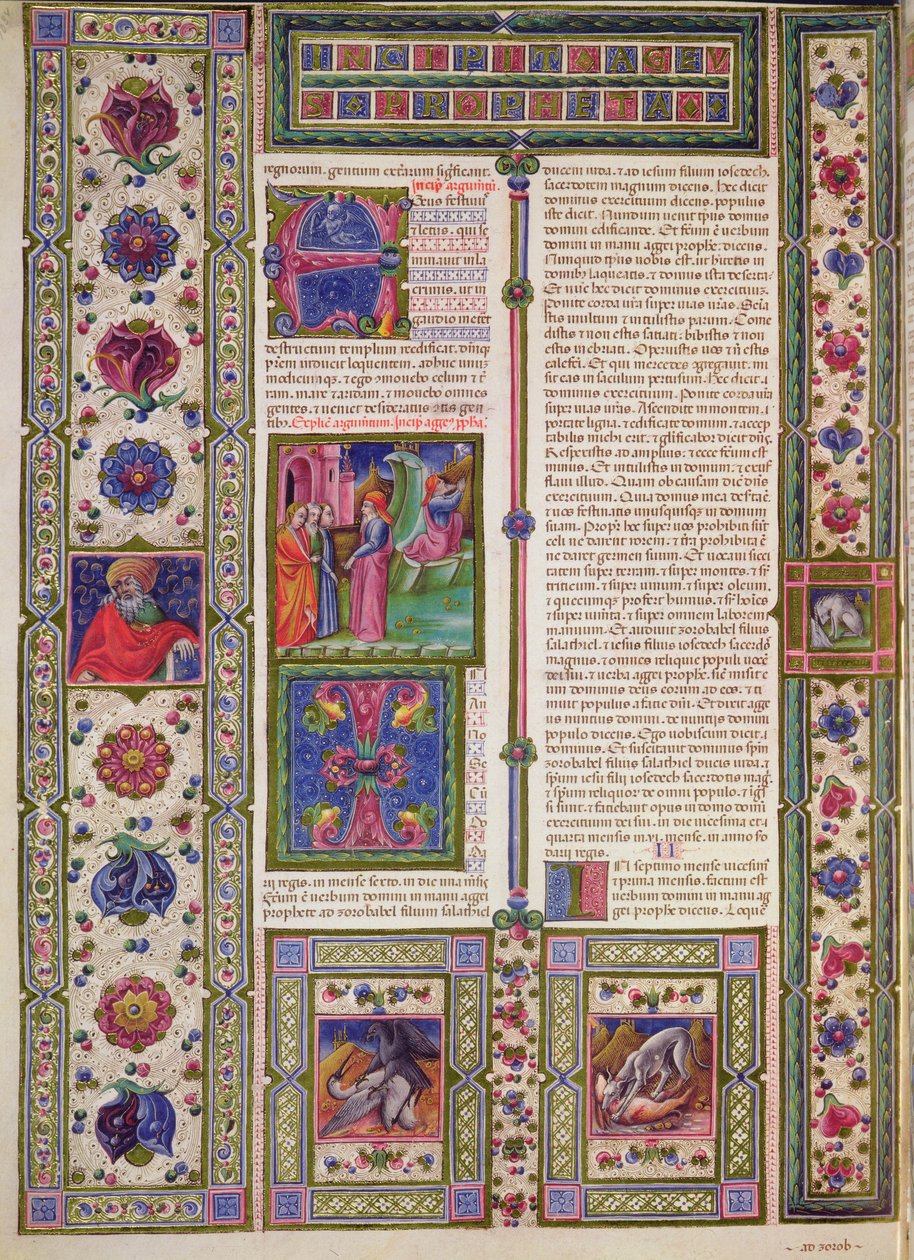 INCIPIT AGEV
S PROPHETA
regnorum. gentium exercituum significant.
Incip̄ argum̄tū.
geus festiuu
⁊ letus. qui se
minauit in la
crimis. ut in
gaudio metet
destructum templum reedificat. dūq̄
p̄rem inducit loquentem. adhuc unū
modicumq̄. ⁊ ego mouebo celum ⁊ t̄
ram. mare ⁊ aridam. ⁊ mouebo omnes
gentes. ⁊ ueniet desideratus gen
tibꝫ. Explic̄ argum̄tum. Incip̄ agge⁹ ppha.
An
No
Se
Cū
Da
rii regis. in mense sexto. in die una m̄sis
factum est uerbum domini in manu aggei
prophete ad zorobabel filium salathiel
ducem iuda. ⁊ ad iesum filium iosedech.
sacerdotem magnum dicens. Hec dicit
dominus exercituum dicens. populus
iste dicit. Nundum uenit tp̄us domus
domini edificande. Et fc̄m ē uerbum
domini in manu aggei prophe. dicens.
Nunquid tp̄us uobis est. ut hitetis in
domibꝫ laqueatis. ⁊ domus ista deserta.
Et nūc hec dicit dominus exercituum.
Ponite corda ur̄a super uias ur̄as. Semī
astis multum ⁊ intulistis parum. Come
distis ⁊ non estis satiati. bibistis ⁊ non
estis inebriati. Operuistis uos ⁊ n̄ estis
calefc̄i. Et qui mercedes ggregauit. mi
sit eas in saculum pertusum. Hec dicit .
dominus exercituum. Ponite cordaur̄a
super uias ur̄as. Ascendite in montem. p̄or
tate ligna. ⁊ edificate domum. ⁊ accep
tabilis michi erit. ⁊ glificabor dicit dn̄s.
Respexistis ad amplius. ⁊ ecce fc̄m est
minus. Et intulistis in domum. ⁊ exuf
flaui illud. Quam ob causam dic̄ dn̄s
exercituum. Quia domus mea deserta ē
⁊ uos festinatis unusquisqꝫ in domum
suam. Propt̄ hec super uos prohibiti sūt
celi ne darent rorem. ⁊ t̄ra prohibita est
ne daret germen suum. Et uocaui sicci
tatem super terram. ⁊ super montes. ⁊ sr̄
triticum. ⁊ super uinum. ⁊ super oleum
⁊ quecumqꝫ profert humus. ⁊ sr̄ hoīes
⁊ super iumta. ⁊ super omnem laborem
manuum. Et audiuit zorobabel filius
salathiel. ⁊ iesus filius iosedech sacerdos
magnus. ⁊ omnes relique populi uocē
dei sui. ⁊ uerba aggei prophe. sic̄ misit
eum dominus deus eorum ad eos. ⁊ ti
muit populus. a facie dn̄i. Et dixit agge
us nuntius domini. de nuntiis domini
populo dicens. Ego uobiscum dicit .
dominus. Et suscitauit dominus spm̄
zorobabel filius salathiel ducis iuda. ⁊
spm̄ iesu filii iosedech sacerdotis mag.
⁊ spm̄ reliquor̄ de omni populo. ⁊ īgs
si sunt. ⁊ faciebant opus in domo domī
exercituum dei sui. in die uicesima et
quarta mensis. in.vi. mense. in anno sco
darii regis. II
In septimo mense uicesim̄
⁊ prima mensis. factum est
uerbum domini in manu ag
gei prophe dicens. Loque
ad zorob